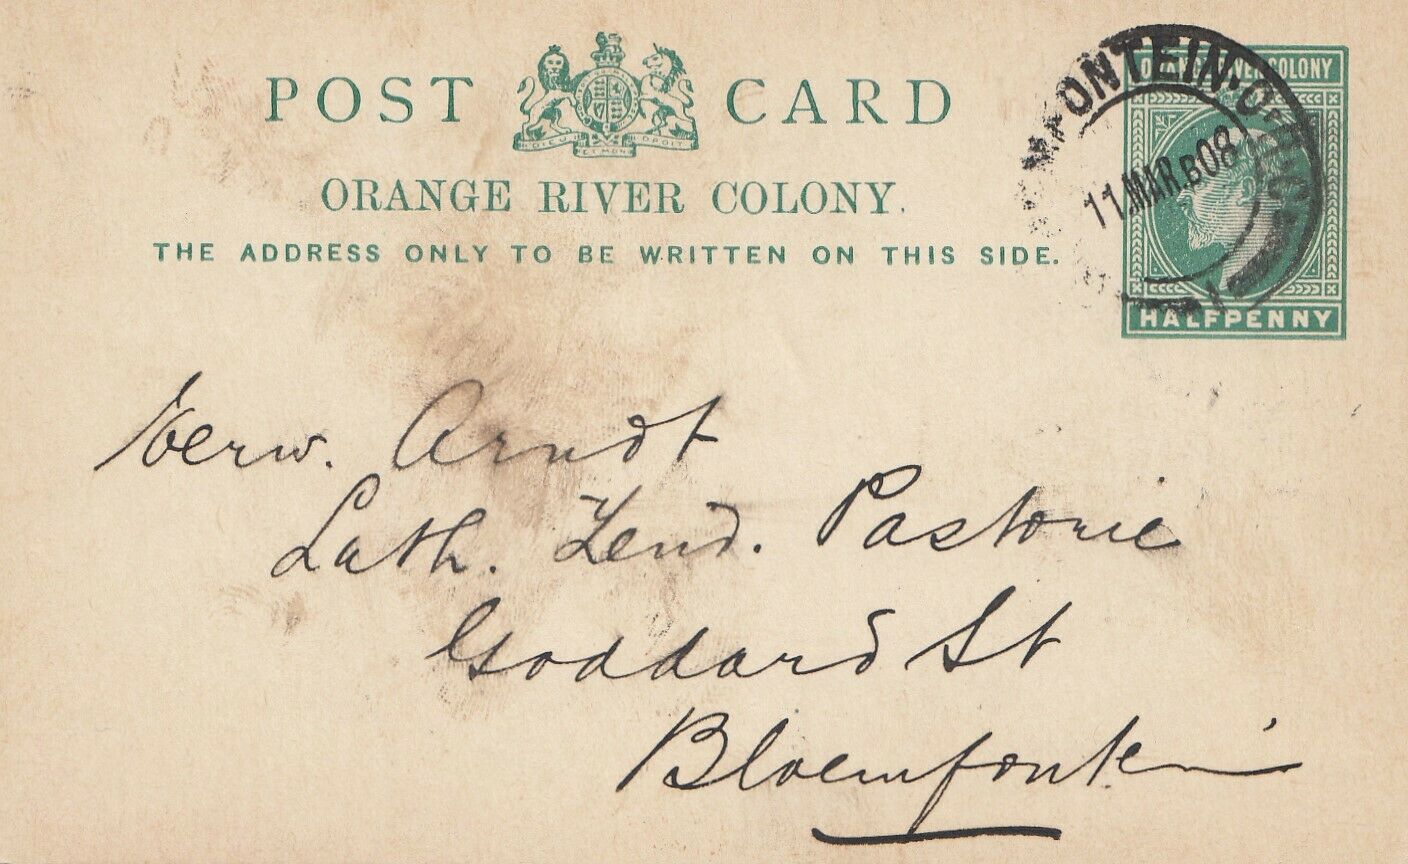 POST CARD
DIEU ET MON DROIT
ORANGE RIVER COLONY.
THE ADDRESS ONLY TO BE WRITTEN ON THIS SIDE.
ORANGE RIVER COLONY
HALFPENNY
MFONTEIN. O.R.C.
11.MAR.B08
Eerw. Arndt
Luth. Zend. Pastorie
Goddard St
Bloemfontein